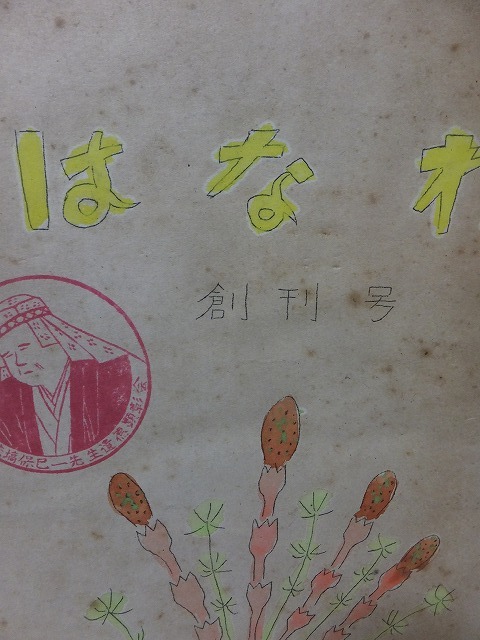 はなわ
創刊号
塙保己一先生遺徳顕彰会